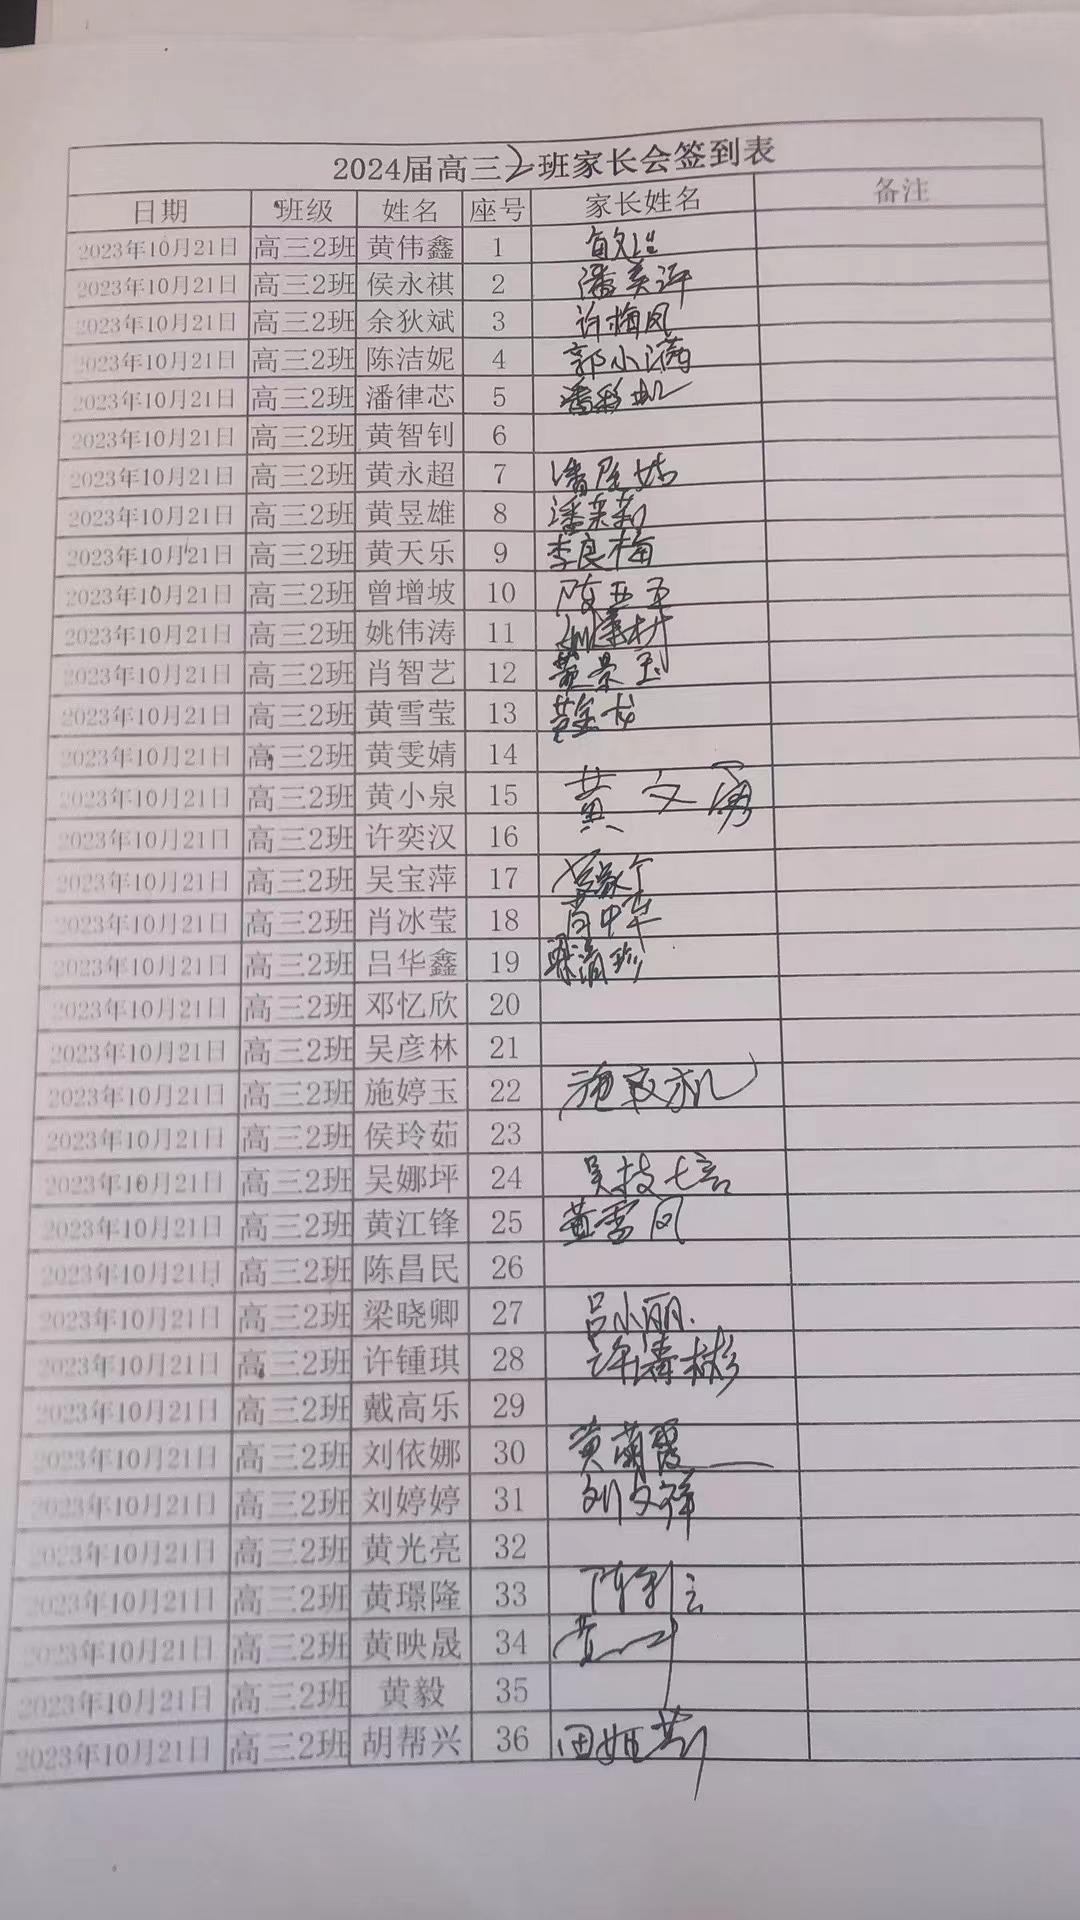 2024届高三2班家长会签到表
日期 班级 姓名 座号 家长姓名 备注
2023年10月21日 高三2班 黄伟鑫 1
2023年10月21日 高三2班 侯永祺 2 潘美评
2023年10月21日 高三2班 余狄斌 3 许梅凤
2023年10月21日 高三2班 陈洁妮 4 郭小满
2023年10月21日 高三2班 潘律芯 5 潘彩虹
2023年10月21日 高三2班 黄智钊 6
2023年10月21日 高三2班 黄永超 7 潘
2023年10月21日 高三2班 黄昱雄 8 潘采莉
2023年10月21日 高三2班 黄天乐 9 李良梅
2023年10月21日 高三2班 曾增坡 10
2023年10月21日 高三2班 姚伟涛 11
2023年10月21日 高三2班 肖智艺 12 黄景玉
2023年10月21日 高三2班 黄雪莹 13 黄宝龙
2023年10月21日 高三2班 黄雯婧 14
2023年10月21日 高三2班 黄小泉 15 黄文勇
2023年10月21日 高三2班 许奕汉 16
2023年10月21日 高三2班 吴宝萍 17
2023年10月21日 高三2班 肖冰莹 18 肖中华
2023年10月21日 高三2班 吕华鑫 19
2023年10月21日 高三2班 邓忆欣 20
2023年10月21日 高三2班 吴彦林 21
2023年10月21日 高三2班 施婷玉 22 施
2023年10月21日 高三2班 侯玲茹 23
2023年10月21日 高三2班 吴娜坪 24 吴技培
2023年10月21日 高三2班 黄江锋 25 黄雪凤
2023年10月21日 高三2班 陈昌民 26
2023年10月21日 高三2班 梁晓卿 27 吕小丽
2023年10月21日 高三2班 许锺琪 28 许清彬
2023年10月21日 高三2班 戴高乐 29
2023年10月21日 高三2班 刘依娜 30 黄兰霞
2023年10月21日 高三2班 刘婷婷 31 刘文祥
2023年10月21日 高三2班 黄光亮 32
2023年10月21日 高三2班 黄璟隆 33
2023年10月21日 高三2班 黄映晟 34
2023年10月21日 高三2班 黄毅 35
2023年10月21日 高三2班 胡帮兴 36 田姬莉